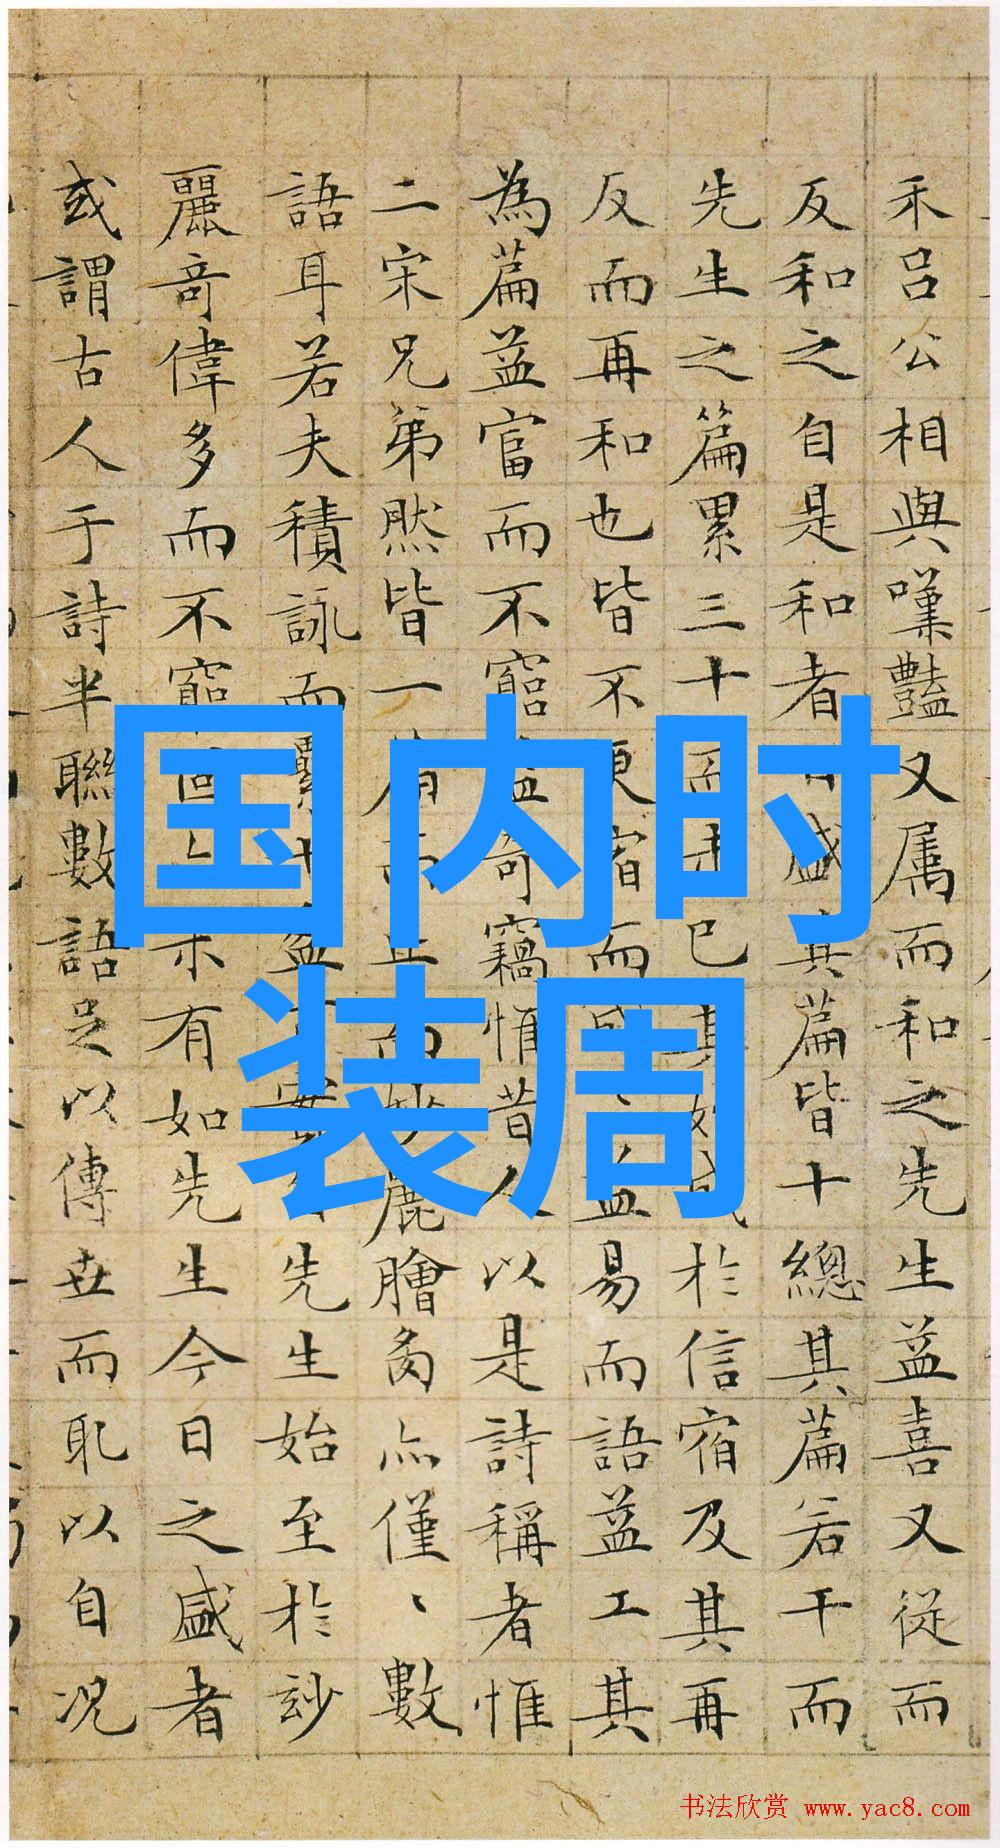 禾呂公相與嘆豔又属而和之先生益喜又從而
反和之自是和者盛其篇皆十總其篇若干而
先生之篇累三十而未已其於信宿及其再
反而再和也皆不更宿而益易而語益工其
為篇益富而不窮益奇竊惟昔人以是詩稱者惟
二宋兄弟然皆一而麗膾亦僅、數
語耳若夫積詠而累十先生始至於玅
麗奇偉多而不窮有如先生今日之盛者
或謂古人于詩半聯數語足以傳世而耻以自况
国内时
装周
书法欣赏 www.yac8.com